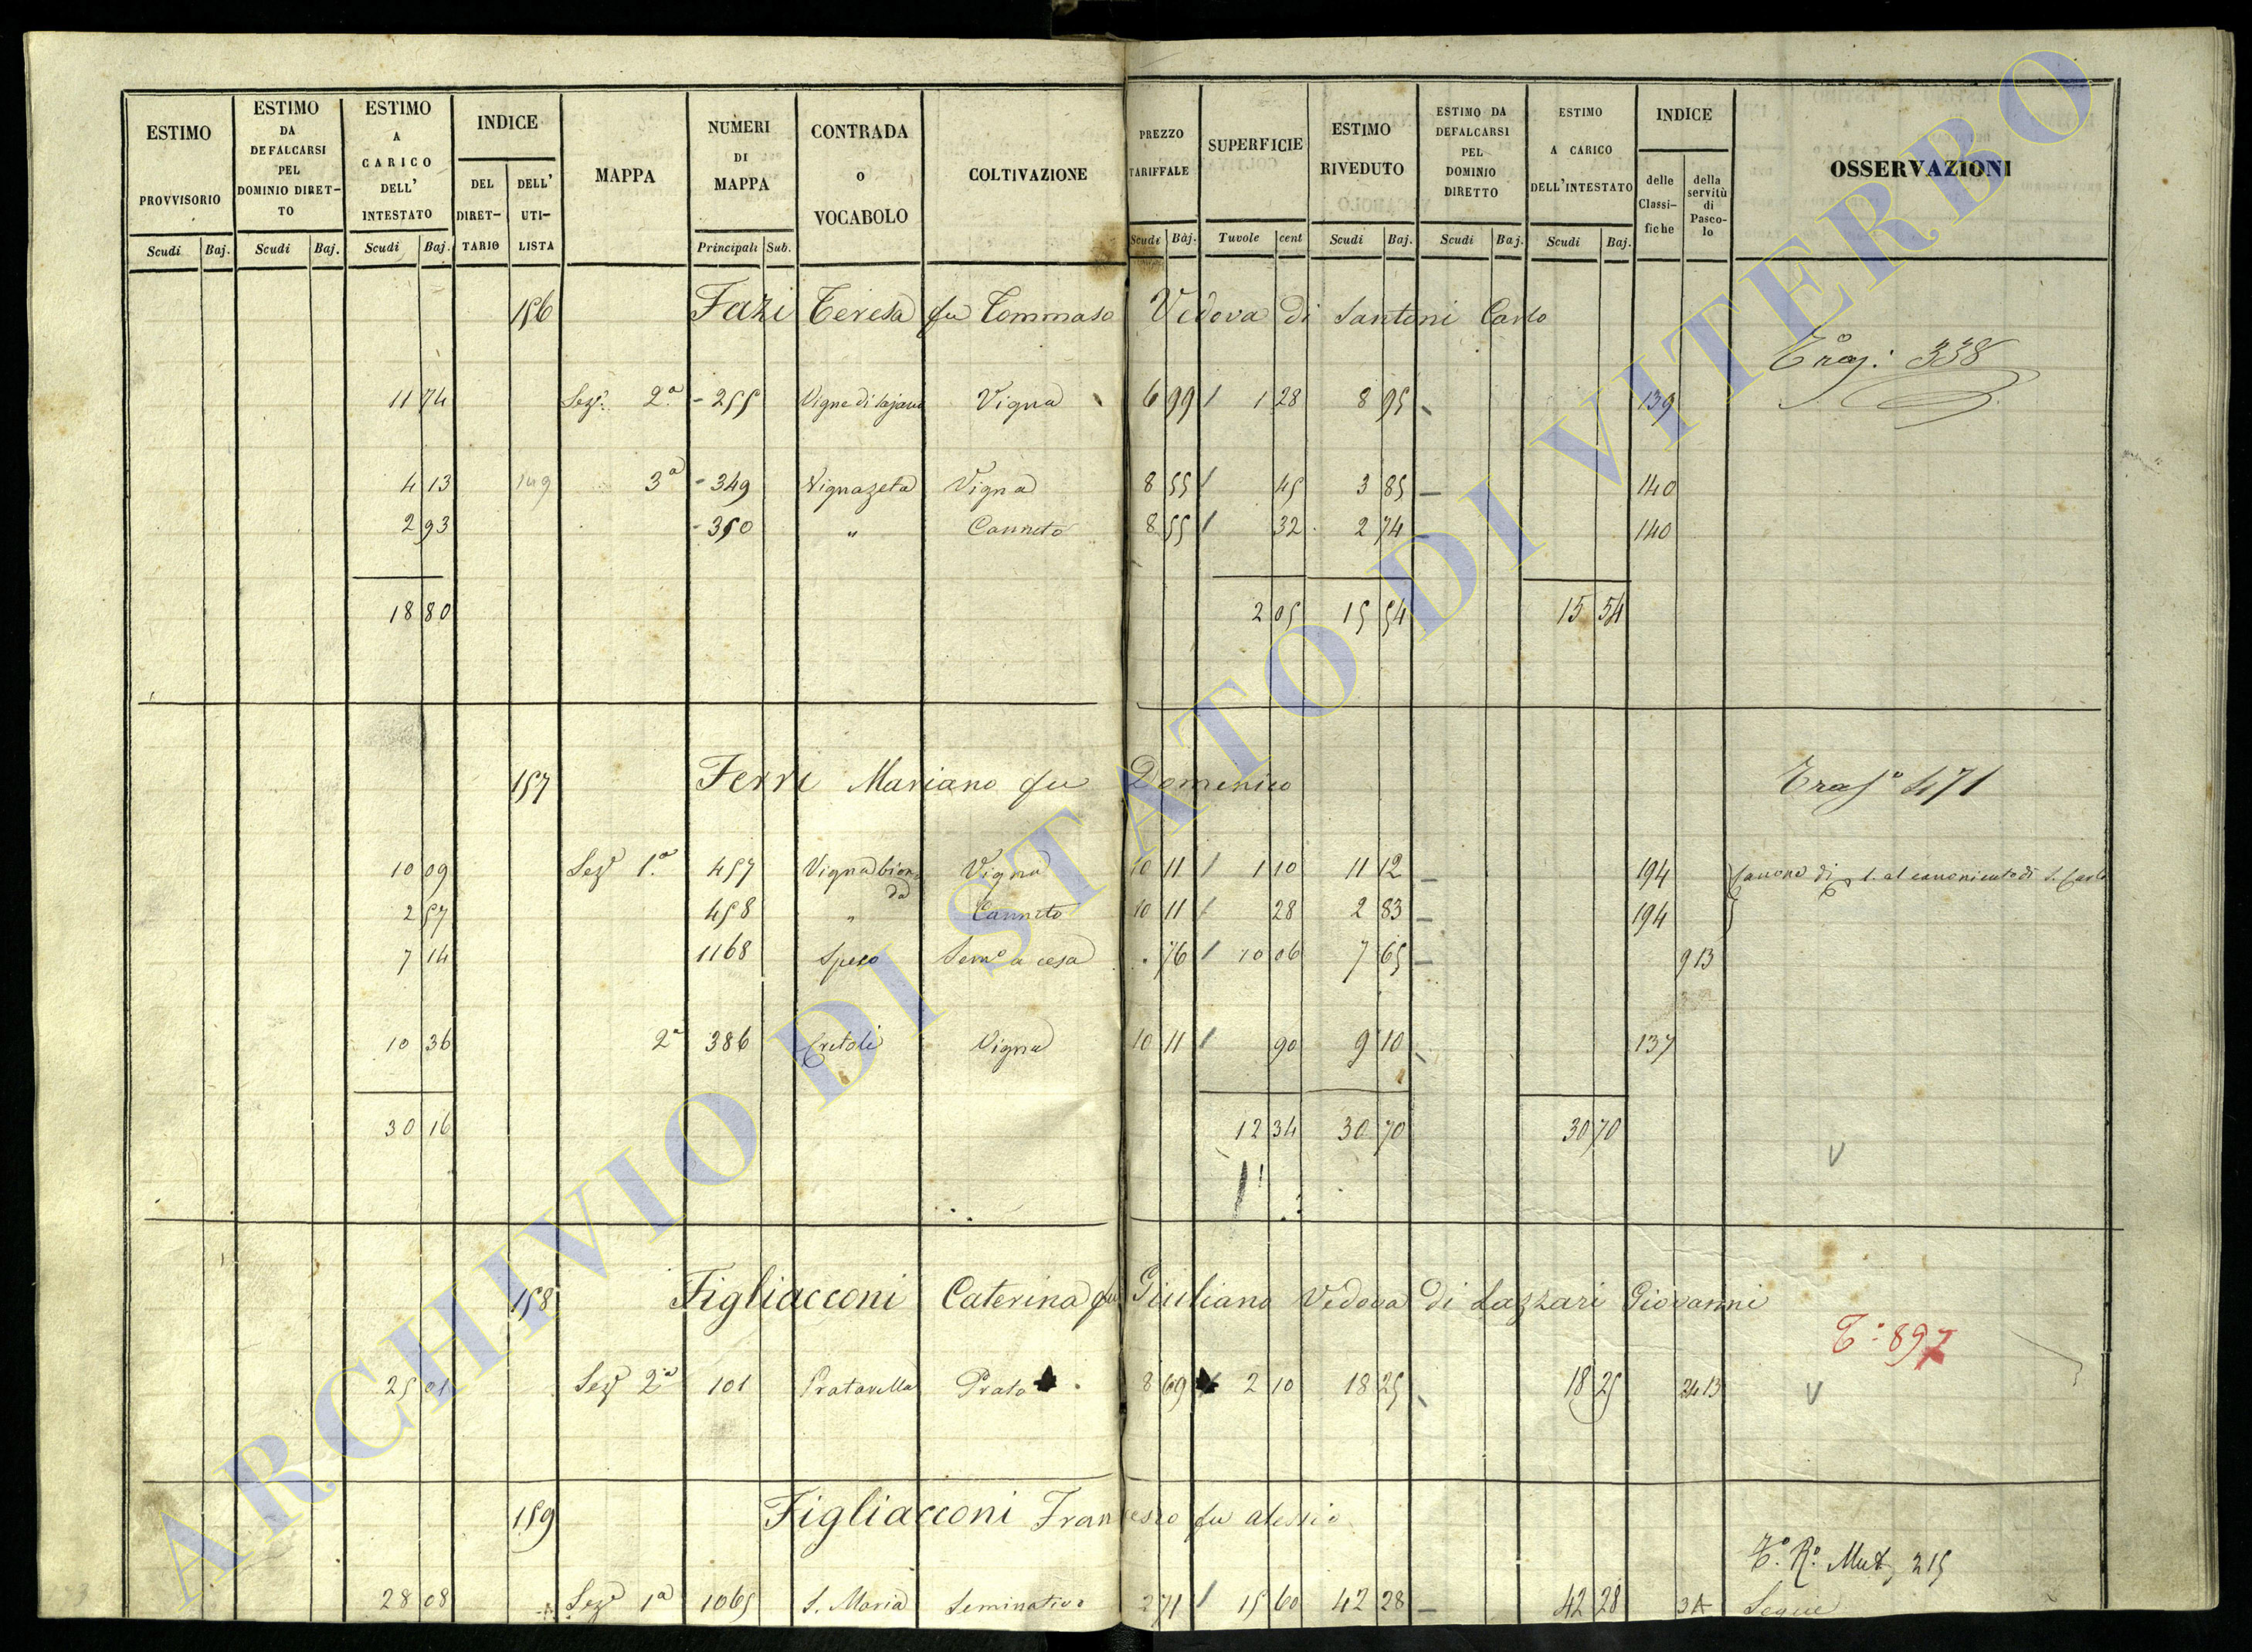 ESTIMO PROVVISORIO
Scudi Baj.
ESTIMO DA DEFALCARSI PEL DOMINIO DIRET-TO
Scudi Baj.
ESTIMO A CARICO DELL' INTESTATO
Scudi Baj.
INDICE
DEL DIRET-TARIO
DELL' UTI-LISTA
MAPPA
NUMERI DI MAPPA
Principali Sub.
CONTRADA o VOCABOLO
COLTIVAZIONE
PREZZO TARIFFALE
Scudi Baj.
SUPERFICIE
Tavole cent
ESTIMO RIVEDUTO
Scudi Baj.
ESTIMO DA DEFALCARSI PEL DOMINIO DIRETTO
Scudi Baj.
ESTIMO A CARICO DELL'INTESTATO
Scudi Baj.
INDICE
delle Classi-fiche
della servitù di Pasco-lo
OSSERVAZIONI
156 Fazi Teresa fu Tommaso Vedova di Santoni Carlo
338
11 74 Sezᵉ 2ᵃ 255 Vigna 6 99 1 28 8 95 139
4 13 149 3ᵃ 349 Vignazeta Vigna 8 55 45 3 85 140
2 93 350 " Canneto 8 55 32 2 74 140
18 80 2 05 15 54 15 54
157 Ferri Mariano fu Domenico
Trasº 471
10 09 Sezᵉ 1ᵃ 457 Vignabionda Vigna 10 11 1 10 11 12 194 Canone di al canonicato di S. Carlo
2 57 458 " Canneto 10 11 28 2 83 194
7 14 1168 Speco Semº a cesa . 76 10 06 7 65 9 13
10 36 2ᵃ 386 Cretoli Vigna 10 11 90 9 10 137
30 16 12 34 30 70 30 70
V
158 Figliacconi Caterina fu Giuliano Vedova di Lazzari Giovanni
Tº 897
25 01 Sezᵉ 2ᵃ 101 Pratarella Prato 8 69 2 10 18 25 18 25 24 13 V
159 Figliacconi Francesco fu Alessio
Tº Rº Mut 215
28 08 Sezᵉ 1ᵃ 1065 S. Maria Seminativo 2 71 15 60 42 28 42 28 Segue
ARCHIVIO DI STATO DI VITERBO